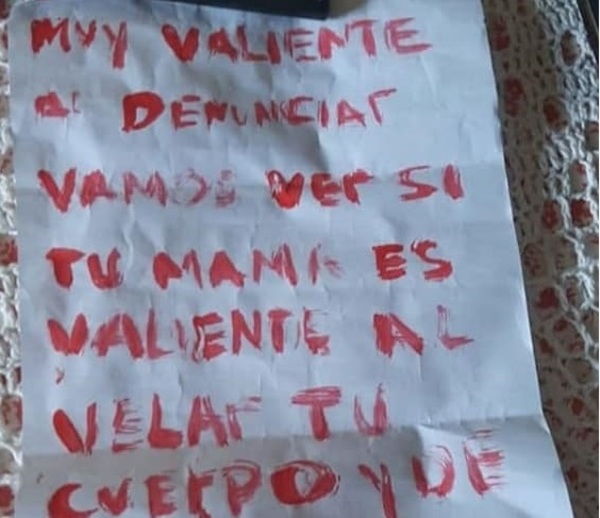 MUY VALIENTE
AL DENUNCIAR
VAMOS VER SI
TU MAMA ES
VALIENTE AL
VELAR TU
CUERPO Y DE